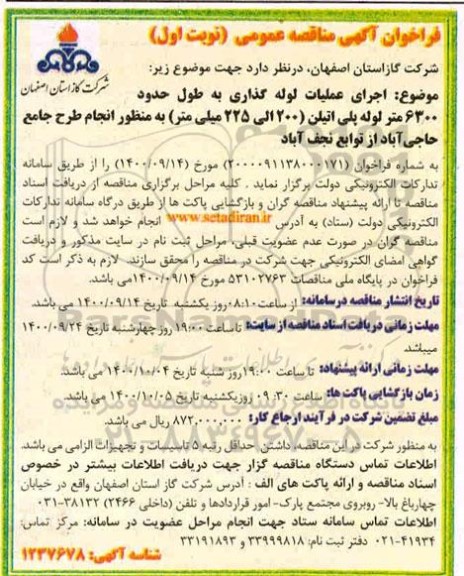 فراخوان آگهی مناقصه عمومی (نوبت اول)
شرکت گاز استان اصفهان
شرکت گازاستان اصفهان، درنظر دارد جهت موضوع زیر:
موضوع: اجرای عملیات لوله گذاری به طول حدود
۶۳۰۰ متر لوله پلی اتیلن (۲۰۰ الی ۲۲۵ میلی متر) به منظور انجام طرح جامع
حاجی‌آباد از توابع نجف آباد
به شماره فراخوان (۲۰۰۰۰۹۱۱۳۸۰۰۰۱۷۱) مورخ (۱۴۰۰/۰۹/۱۴) را از طریق سامانه
تدارکات الکترونیکی دولت برگزار نماید . کلیه مراحل برگزاری مناقصه از دریافت اسناد
مناقصه تا ارائه پیشنهاد مناقصه گران و بازگشایی پاکت ها از طریق درگاه سامانه تدارکات
الکترونیکی دولت (ستاد) به آدرس www.setadiran.ir انجام خواهد شد و لازم است
مناقصه گران در صورت عدم عضویت قبلی، مراحل ثبت نام در سایت مذکور و دریافت
گواهی امضای الکترونیکی جهت شرکت در مناقصه را محقق سازند. لازم به ذکر است کد
فراخوان در پایگاه ملی مناقصات ۵۳۱۰۲۷۶۳ مورخ ۱۴۰۰/۰۹/۱۴می باشد.
تاریخ انتشار مناقصه درسامانه: از ساعت۰۸:۱۰روز یکشنبه تاریخ ۱۴۰۰/۰۹/۱۴ می باشد.
مهلت زمانی دریافت اسناد مناقصه از سایت: تاساعت ۱۹:۰۰ روز چهارشنبه تاریخ ۱۴۰۰/۰۹/۲۴
میباشد
مهلت زمانی ارائه پیشنهاد: تا ساعت ۱۹:۰۰روز شنبه تاریخ ۱۴۰۰/۱۰/۰۴ می باشد.
زمان بازگشایی پاکت ها: ساعت ۰۹:۳۰ روزیکشنبه تاریخ ۱۴۰۰/۱۰/۰۵ می باشد.
مبلغ تضمین شرکت در فرآیند ارجاع کار: ۸۷۲,۰۰۰,۰۰۰ ریال می باشد.
به منظور شرکت در این مناقصه، داشتن حداقل رتبه ۵ تاسیسات و تجهیزات الزامی می باشد.
اطلاعات تماس دستگاه مناقصه گزار جهت دریافت اطلاعات بیشتر در خصوص
اسناد مناقصه و ارائه پاکت های الف : آدرس شرکت گاز استان اصفهان واقع در خیابان
چهارباغ بالا- روبروی مجتمع پارک- امور قراردادها و تلفن (داخلی ۲۴۶۶) ۳۸۱۳۲-۰۳۱
اطلاعات تماس سامانه ستاد جهت انجام مراحل عضویت در سامانه: مرکز تماس:
۴۱۹۳۴-۰۲۱ دفتر ثبت نام: ۳۳۹۹۹۸۱۸ و ۳۳۱۹۱۸۹۳
شناسه آگهی: ۱۲۳۷۶۷۸